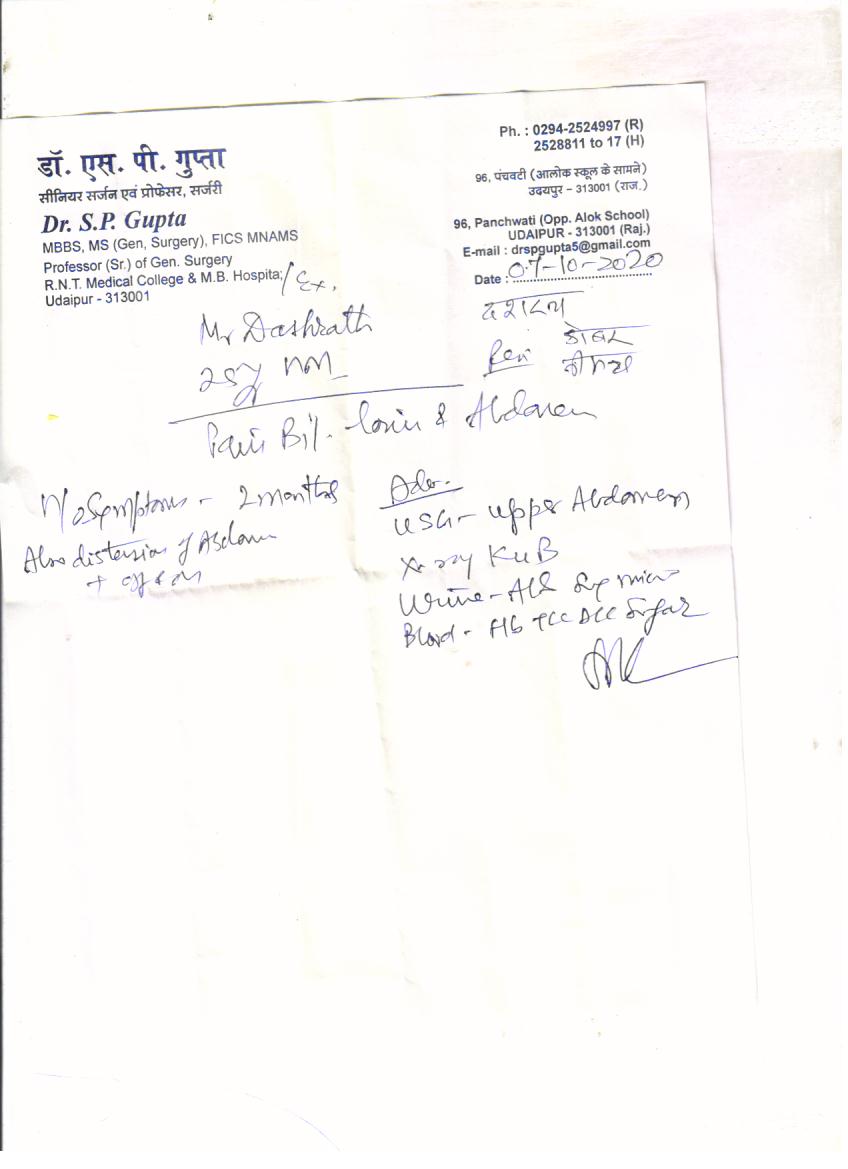 डॉ. एस. पी. गुप्ता
सीनियर सर्जन एवं प्रोफेसर, सर्जरी
Dr. S.P. Gupta
MBBS, MS (Gen, Surgery), FICS MNAMS
Professor (Sr.) of Gen. Surgery
R.N.T. Medical College & M.B. Hospita; / Ex.
Udaipur - 313001
Ph. : 0294-2524997 (R)
2528811 to 17 (H)
96, पंचवटी (आलोक स्कूल के सामने)
उदयपुर – 313001 (राज.)
96, Panchwati (Opp. Alok School)
UDAIPUR - 313001 (Raj.)
E-mail : drspgupta5@gmail.com
Date : 07-10-2020
Mr Dashrath
25y
Pain Bil. loin & Abdomen
Symptoms - 2 months
Also distension of Abdomen
Adv.
USG - upper Abdomen
X-ray KUB
Urine - Alb Sug micro
Blood - Hb TLC DLC Sugar